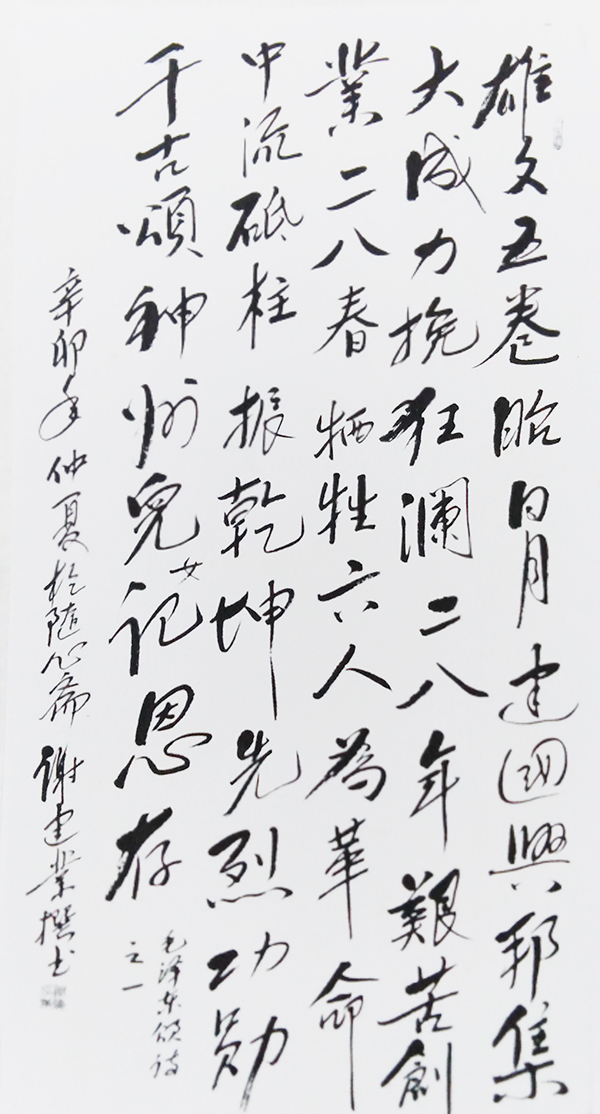 雄文五卷昭日月建國興邦集
大成力挽狂澜二八年艱苦創
業二八春牺牲六人為革命
中流砥柱振乾坤先烈功勋
千古頌神州兒女记恩存
毛泽东颂诗
之一
辛卯年仲夏於随心斋谢建業撰书